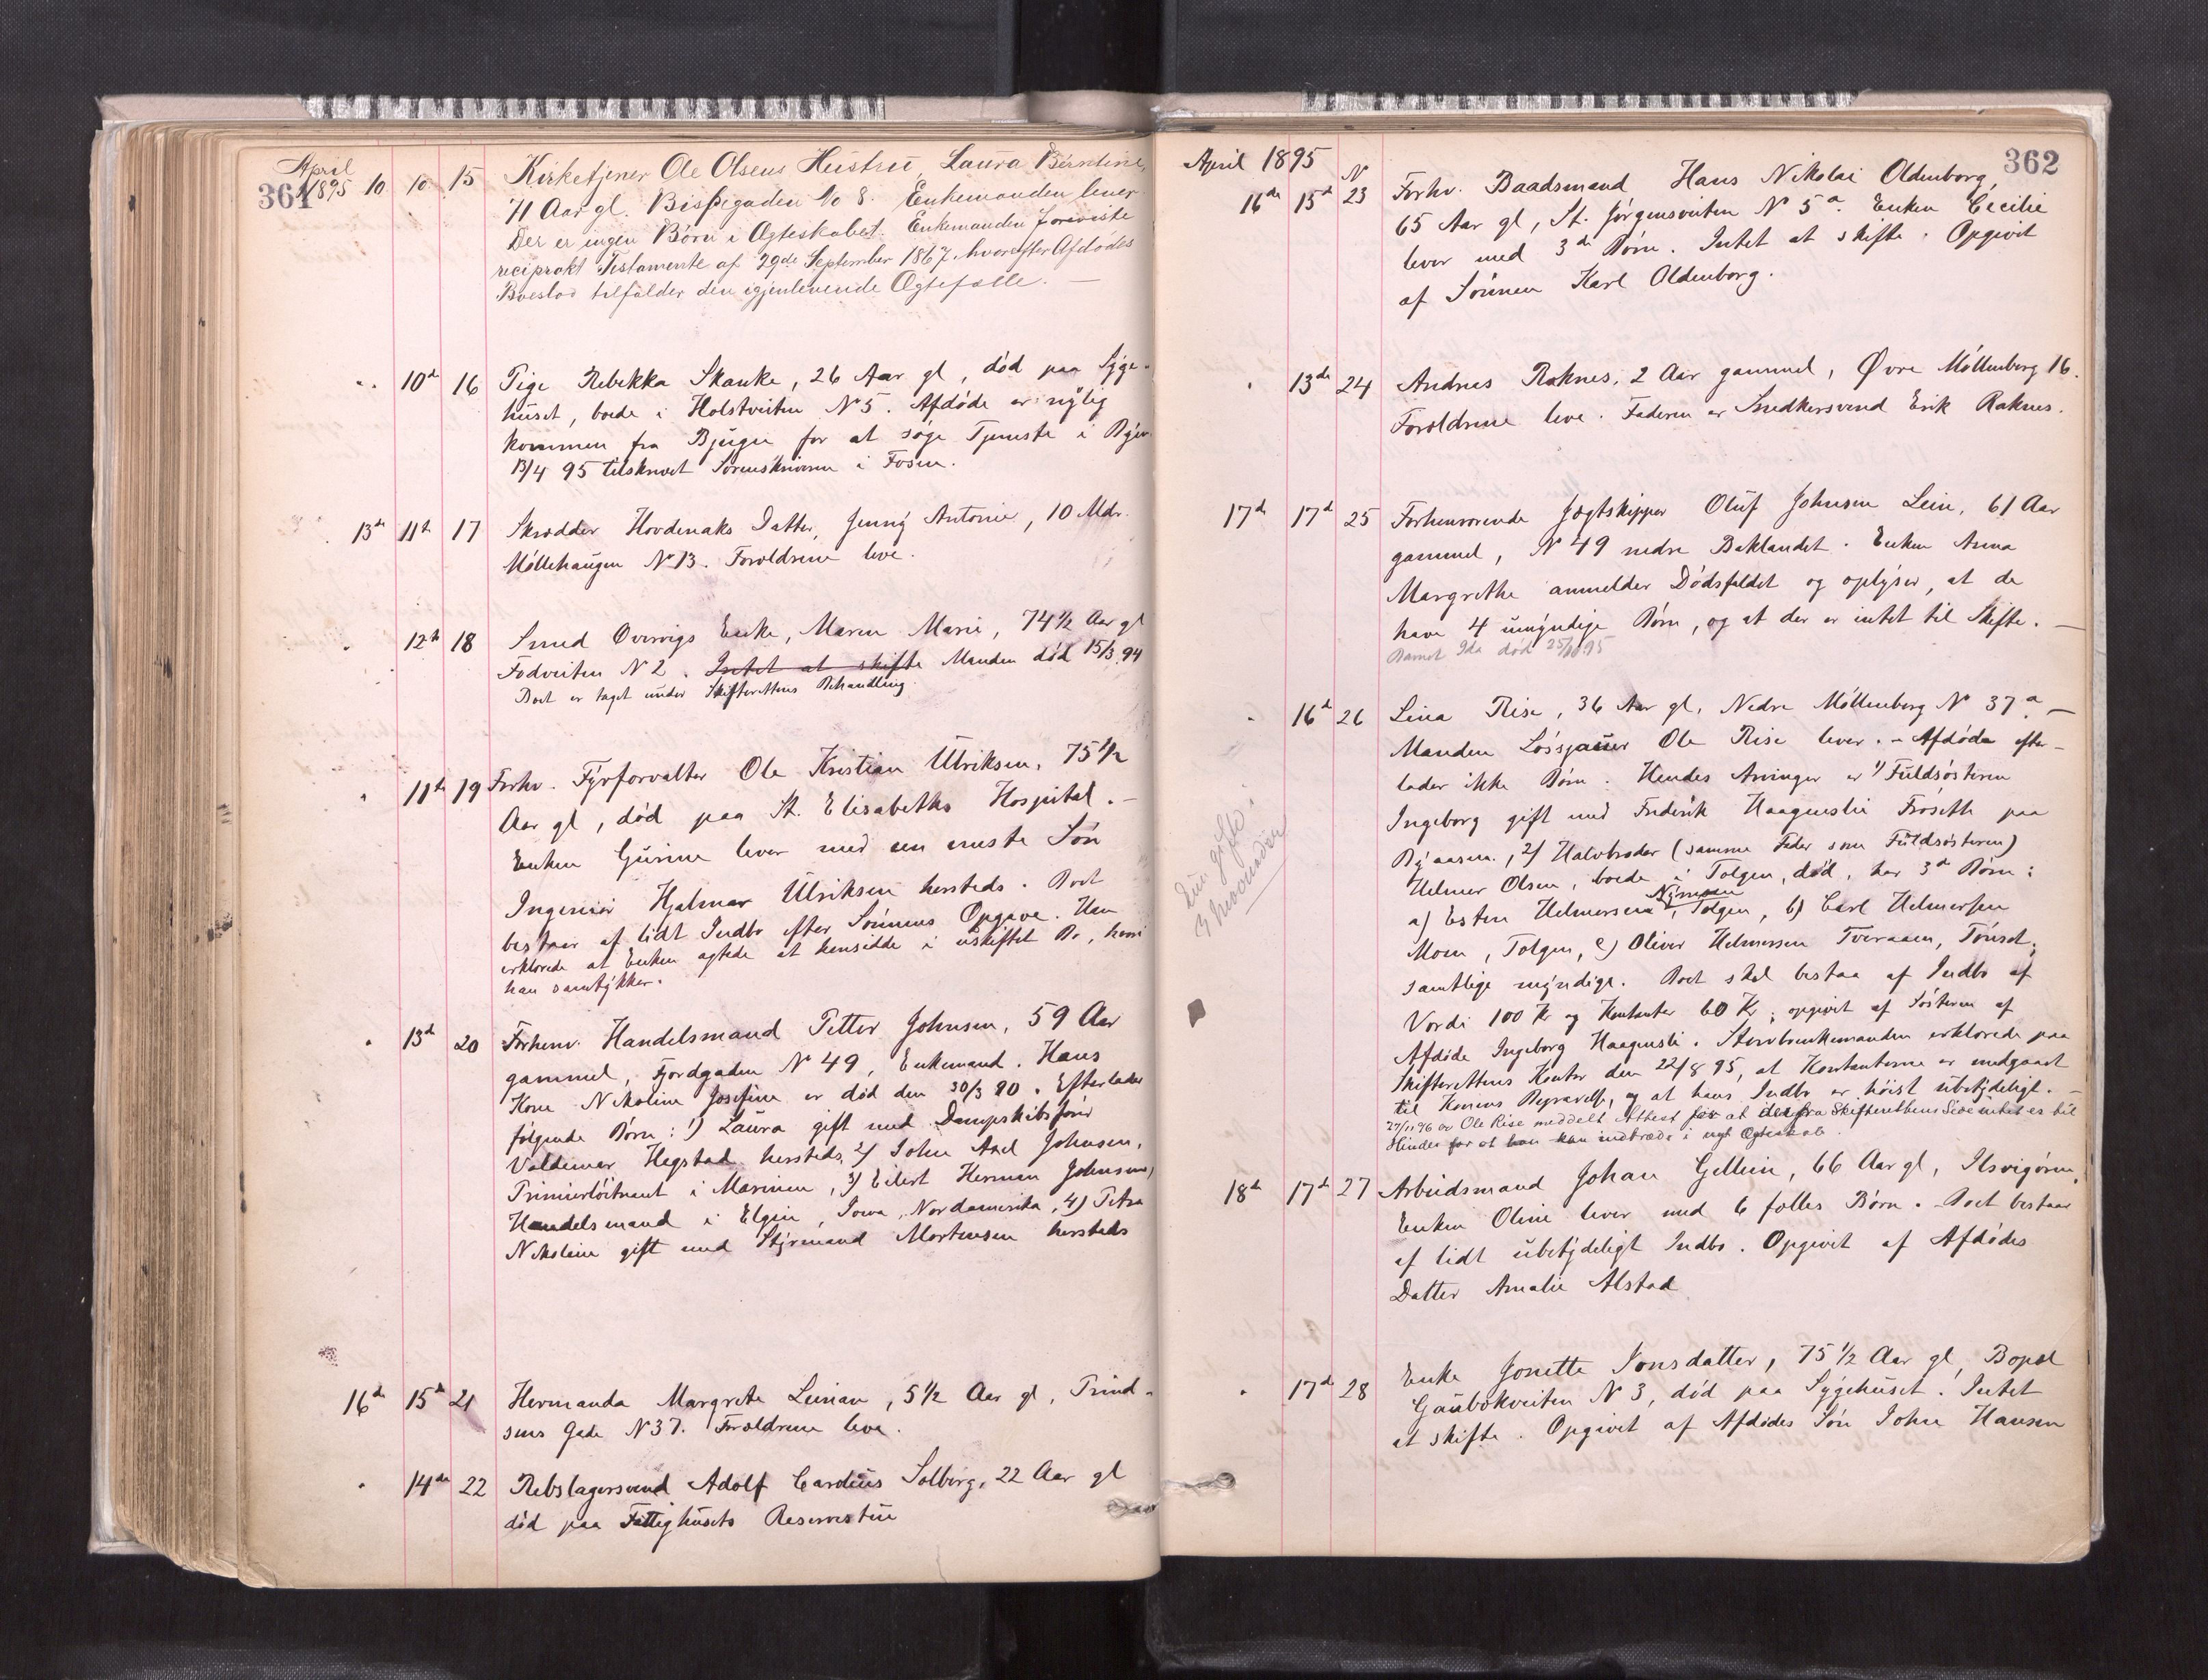 April
361 1895 10 10 15 Kirketjener Ole Olsens Hustru, Laura Berntine,
71 Aar gl. Bispegaden No 8. Enkemanden lever.
Der er ingen Børn i Ægteskabet. Enkemanden foreviste
reciprokt Testamente af 29de September 1867, hvorefter Afdødes
Boeslod tilfalder den igjenlevende Ægtefælle. —
" 10d 16 Pige Rebekka Skanke, 26 Aar gl, død paa Syge-
huset, boede i Holstveiten N 5. Afdøde er nylig
kommen fra Bjugn for at søge Tjeneste i Byen.
13/4 95 tilskrevet Sorenskriveren i Fosen.
13de 11te 17 Skrædder Hovdenaks Datter, Jenny Antonie, 10 Mdr.
Møllehaugen No 13. Forældrene leve.
" 12te 18 Smed Overvigs Enke, Maren Marie, 74 1/2 Aar gl
Fodveiten N 2. Intet at skifte Manden død 15/3 94
Boet er taget under Skifterettens Behandling.
" 11te 19 Forhv. Fyrforvalter Ole Kristian Ulriksen, 75 1/2
Aar gl, død paa St. Elisabeths Hospital. —
Enken Gurine lever med sin eneste Søn
Ingeniør Hjalmar Ulriksen hersteds. Boet
bestaar af lidt Indbo efter Sønnens Opgave. Han
erklærede at Enken agtede at hensidde i uskiftet Bo, hvori
han samtykker.
" 13d 20 Forhenv. Handelsmand Petter Johnsen, 59 Aar
gammel, Fjordgaden No 49, Enkemand. Hans
Kone Nikoline Josefine er død den 30/3 80. Efterlader
følgende Børn: 1) Laura gift med Dampskibsfører
Valdemar Hegstad hersteds, 2) John Axel Johnsen,
Primierløitnant i Marinen, 3) Eilert Herman Johnsen,
Handelsmand i Elgin, Iowa, Nordamerika, 4) Petra
Nikoline gift med Styrmand Mortensen hersteds
16de 15d 21 Hermanda Margrete Leinan, 5 1/2 Aar gl, Trind-
sens Gade N 37. Forældrene leve.
" 14de 22 Rebslagersvend Adolf Carolius Solberg, 22 Aar gl
død paa Fattighusets Reservestue
April 1895 362
16de 15d N 23 Forhv. Baadsmand Hans Nikolai Oldenborg,
65 Aar gl, St. Jørgensveiten N 5a. Enken Cecilie
lever med 3de Børn. Intet at skifte. Opgivet
af Sønnen Karl Oldenborg.
" 13de 24 Andreas Raknes, 2 Aar gammel, Øvre Møllenberg 16.
Forældrene leve. Faderen er Snedkersvend Erik Raknes.
17de 17d 25 Forhenværende Jægtskipper Oluf Johnsen Lein, 61 Aar
gammel, N 49 nedre Baklandet. Enken Anna
Margrethe anmelder Dødsfaldet og oplyser, at de
have 4 umyndige Børn, og at der er intet til Skifte. —
Barnet Ida død 25/10 95
" 16d 26 Lina Rise, 36 Aar gl, Nedre Møllenberg No 37a. —
Manden Løssjauer Ole Rise lever. – Afdøde efter-
lader ikke Børn. Hendes Arvinger er 1) Fuldsøsteren
Ingeborg gift med Frederik Haagenslie Frøseth paa
Byaasen., 2) Halvbroder (samme Fader som Fuldsøsteren)
Helmer Olsen, boede i Tolgen, død, har 3de Børn:
a) Esten Helmersen Nymoen, Tolgen, b) Carl Helmersen
Moen, Tolgen, c) Oliver Helmersen Tveraaen, Tønset;
samtlige myndige. Boet skal bestaa af Indbo af
Værdi 100 Kr og Kontanter 60 Kr; opgivet af Søsteren af
Afdøde Ingeborg Haagensli. Stervboenkemanden erklærede paa
Skifterettens Kontor den 22/8 95, at Kontanterne er medgaaet
til Konens Begravelse, og at hans Indbo er høist ubetydeligt. —
27/11 96 er Ole Rise meddelt Attest for at der fra Skifterettens Side intet er til
Hinder for at han kan indtræde i nyt Ægteskab.
Den gifte:
3 hvorunder
18de 17d 27 Arbeidsmand Johan Gellein, 66 Aar gl, Ilsvigøren,
Enken Oline lever med 6 fælles Børn. – Boet bestaar
af lidt ubetydeligt Indbo. Opgivet af Afdødes
Datter Amalie Alstad
" 17d 28 Enke Jonette Jonsdatter, 75 1/2 Aar gl, Bopæl
Gaubækveiten N 3, død paa Sygehuset. Intet
at skifte. Opgivet af Afdødes Søn John Hansen